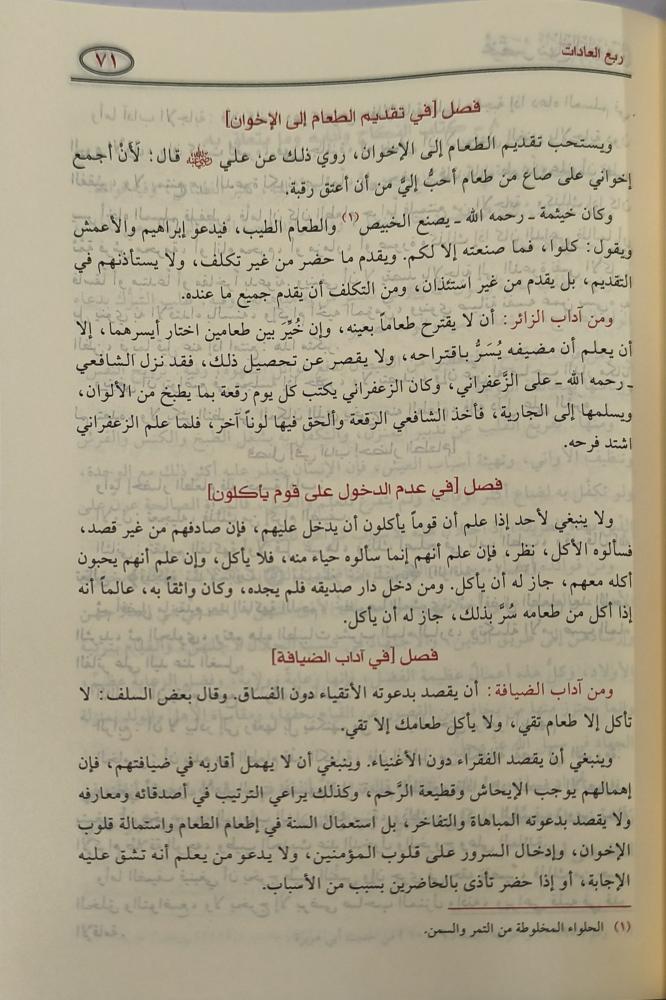 ربع العادات
٧١
فصل [في تقديم الطعام إلى الإخوان]
ويستحب تقديم الطعام إلى الإخوان، روي ذلك عن علي رضي الله عنه قال: لَأَنْ أجمع
إخواني على صاع من طعام أحبُّ إليَّ من أن أعتق رقبة.
وكان خيثمة ـ رحمه الله ـ يصنع الخبيص(١) والطعام الطيب، فيدعو إبراهيم والأعمش
ويقول: كلوا، فما صنعته إلا لكم. ويقدم ما حضر من غير تكلف، ولا يستأذنهم في
التقديم، بل يقدم من غير استئذان، ومن التكلف أن يقدم جميع ما عنده.
ومن آداب الزائر: أن لا يقترح طعاماً بعينه، وإن خُيِّرَ بين طعامين اختار أيسرهما، إلا
أن يعلم أن مضيفه يُسَرُّ باقتراحه، ولا يقصر عن تحصيل ذلك، فقد نزل الشافعي
ـ رحمه الله ـ على الزَّعفراني، وكان الزعفراني يكتب كل يوم رقعة بما يطبخ من الألوان،
ويسلمها إلى الجارية، فأخذ الشافعي الرقعة وألحق فيها لوناً آخر، فلما علم الزعفراني
اشتد فرحه.
فصل [في عدم الدخول على قوم يأكلون]
ولا ينبغي لأحد إذا علم أن قوماً يأكلون أن يدخل عليهم، فإن صادفهم من غير قصد،
فسألوه الأكل، نظر، فإن علم أنهم إنما سألوه حياء منه، فلا يأكل، وإن علم أنهم يحبون
أكله معهم، جاز له أن يأكل. ومن دخل دار صديقه فلم يجده، وكان واثقاً به، عالماً أنه
إذا أكل من طعامه سُرَّ بذلك، جاز له أن يأكل.
فصل [في آداب الضيافة]
ومن آداب الضيافة: أن يقصد بدعوته الأتقياء دون الفساق. وقال بعض السلف: لا
تأكل إلا طعام تقي، ولا يأكل طعامك إلا تقي.
وينبغي أن يقصد الفقراء دون الأغنياء. وينبغي أن لا يهمل أقاربه في ضيافتهم، فإن
إهمالهم يوجب الإيحاش وقطيعة الرَّحم، وكذلك يراعي الترتيب في أصدقائه ومعارفه
ولا يقصد بدعوته المباهاة والتفاخر، بل استعمال السنة في إطعام الطعام واستمالة قلوب
الإخوان، وإدخال السرور على قلوب المؤمنين، ولا يدعو من يعلم أنه تشق عليه
الإجابة، أو إذا حضر تأذى بالحاضرين بسبب من الأسباب.
(١) الحلواء المخلوطة من التمر والسمن.